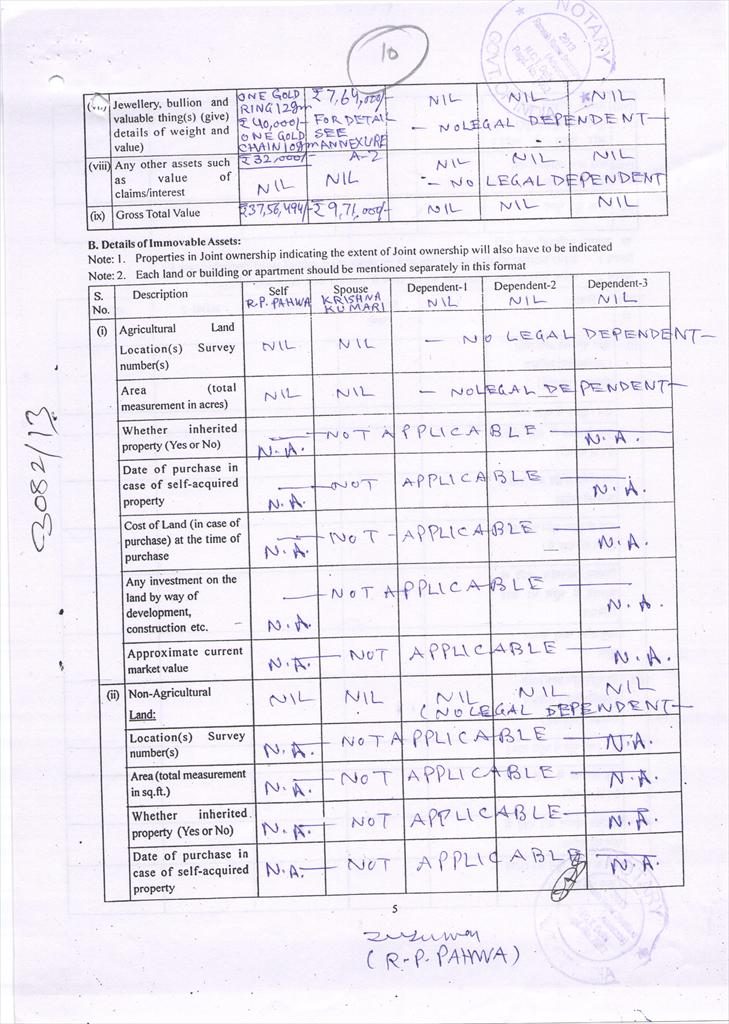 10
NOTARY
GOVT. OF INDIA
2013
(vii) Jewellery, bullion and valuable thing(s) (give) details of weight and value)
ONE GOLD RING 12gm ₹40,000/- ONE GOLD CHAIN 10gm ₹32,000/-
₹7,64,000/- FOR DETAIL SEE ANNEXURE A-2
NIL NIL NIL
- NO LEGAL DEPENDENT -
(viii) Any other assets such as value of claims/interest
NIL NIL NIL NIL NIL
- NO LEGAL DEPENDENT
(ix) Gross Total Value ₹37,56,494/- ₹9,71,000/- NIL NIL NIL
B. Details of Immovable Assets:
Note: 1. Properties in Joint ownership indicating the extent of Joint ownership will also have to be indicated
Note: 2. Each land or building or apartment should be mentioned separately in this format
S. No. Description Self R.P. PAHWA Spouse KRISHNA KUMARI Dependent-1 NIL Dependent-2 NIL Dependent-3 NIL
(i) Agricultural Land
Location(s) Survey number(s)
NIL NIL - NO LEGAL DEPENDENT -
Area (total measurement in acres) NIL NIL - NO LEGAL DEPENDENT -
Whether inherited property (Yes or No) N.A. - NOT APPLICABLE - N.A.
Date of purchase in case of self-acquired property N.A. - NOT APPLICABLE - N.A.
Cost of Land (in case of purchase) at the time of purchase N.A. - NOT APPLICABLE - N.A.
Any investment on the land by way of development, construction etc. N.A. - NOT APPLICABLE - N.A.
Approximate current market value N.A. - NOT APPLICABLE - N.A.
(ii) Non-Agricultural Land: NIL NIL NIL NIL NIL
(NO LEGAL DEPENDENT -
Location(s) Survey number(s) N.A. - NOT APPLICABLE - N.A.
Area (total measurement in sq.ft.) N.A. - NOT APPLICABLE - N.A.
Whether inherited property (Yes or No) N.A. - NOT APPLICABLE - N.A.
Date of purchase in case of self-acquired property N.A. - NOT APPLICABLE - N.A.
3082/13
5
(R.P. PAHWA)
NOTARY